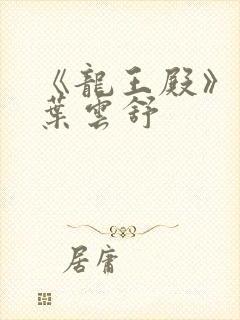 《龍王殿》
葉雲舒
居庸